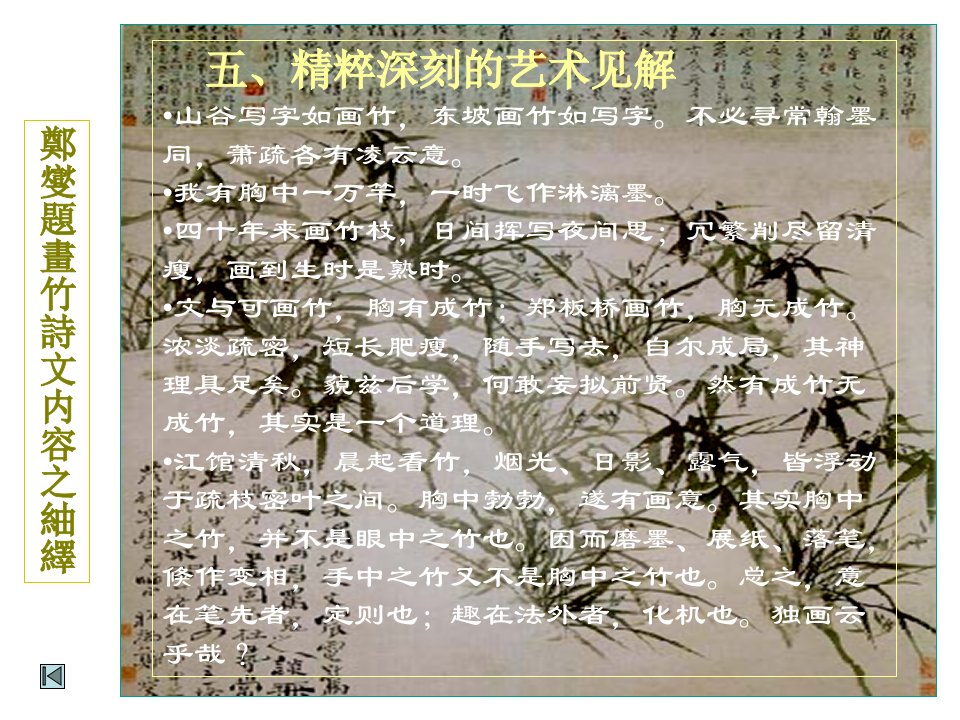 鄭燮題畫竹詩文内容之紬繹
五、精粹深刻的艺术见解
•山谷写字如画竹，东坡画竹如写字。不必寻常翰墨
同，萧疏各有凌云意。
•我有胸中一万竿，一时飞作淋漓墨。
•四十年来画竹枝，日间挥写夜间思；冗繁削尽留清
瘦，画到生时是熟时。
•文与可画竹，胸有成竹；郑板桥画竹，胸无成竹。
浓淡疏密，短长肥瘦，随手写去，自尔成局，其神
理具足矣。藐兹后学，何敢妄拟前贤。然有成竹无
成竹，其实是一个道理。
•江馆清秋，晨起看竹，烟光、日影、露气，皆浮动
于疏枝密叶之间。胸中勃勃，遂有画意。其实胸中
之竹，并不是眼中之竹也。因而磨墨、展纸、落笔，
倏作变相，手中之竹又不是胸中之竹也。总之，意
在笔先者，定则也；趣在法外者，化机也。独画云
乎哉？